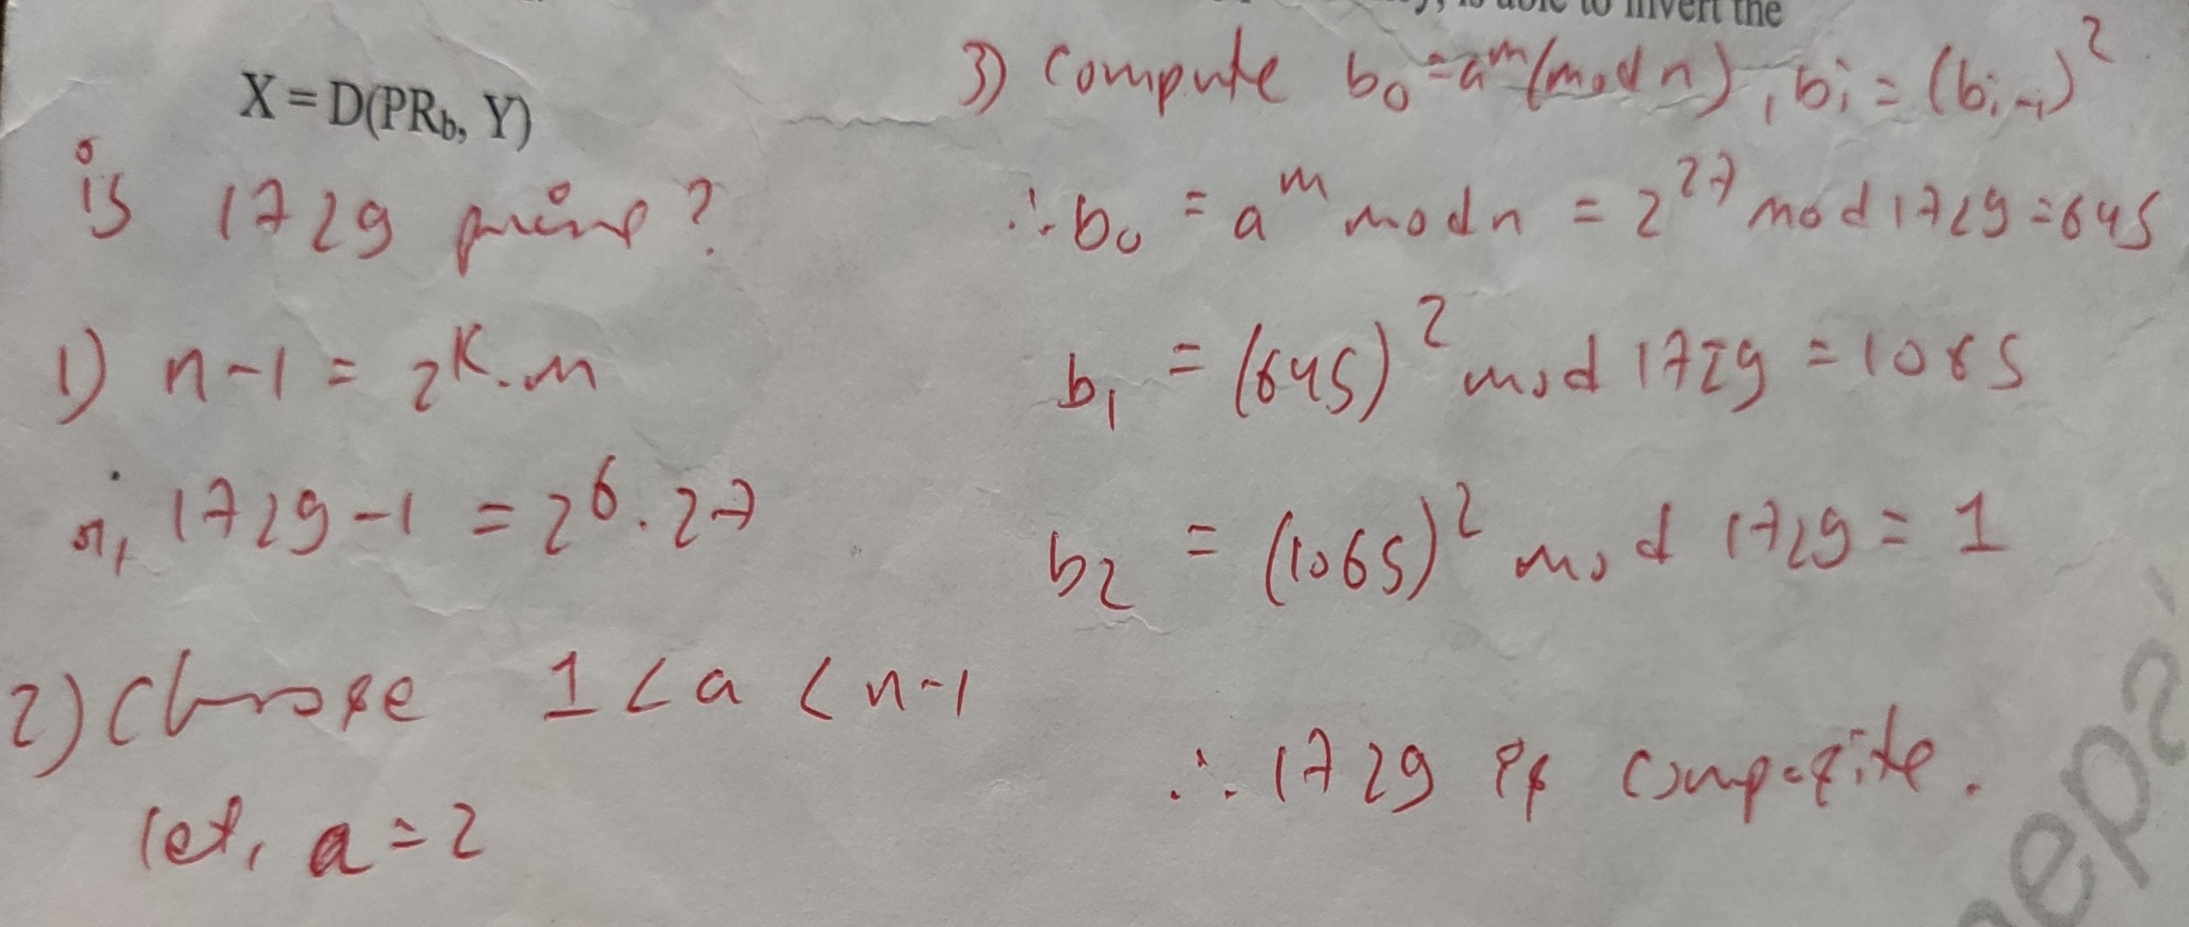 is able to invert the
X = D(PRb, Y)
is 1729 prime?
1) n-1 = 2^k.m
1729-1 = 2^6.27
2) Choose 1 < a < n-1
let, a = 2
3) Compute b0 = a^m (mod n), bi = (bi-1)^2
∴ b0 = a^m mod n = 2^27 mod 1729 = 645
b1 = (645)^2 mod 1729 = 1065
b2 = (1065)^2 mod 1729 = 1
∴ 1729 is composite.